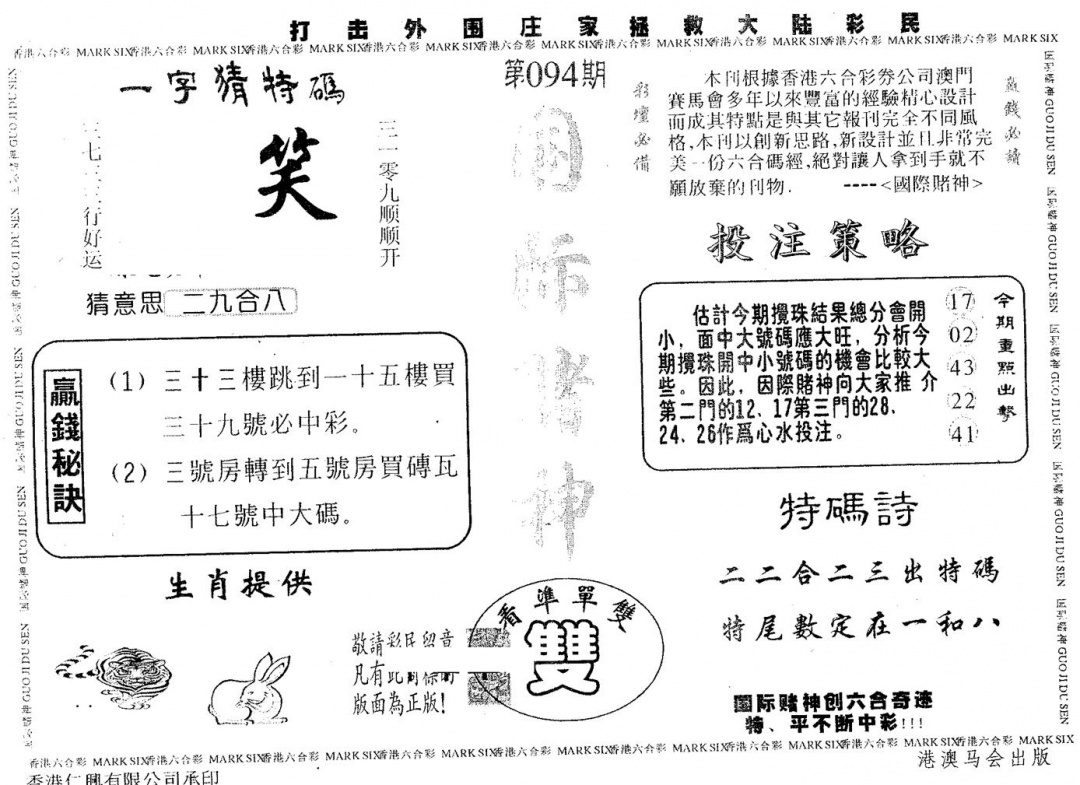 打击外围庄家拯救大陆彩民
香港六合彩 MARK SIX香港六合彩 MARK SIX香港六合彩 MARK SIX香港六合彩 MARK SIX香港六合彩 MARK SIX香港六合彩 MARK SIX香港六合彩 MARK SIX香港六合彩 MARK SIX香港六合彩 MARK SIX
一字猜特碼
笑
三一零九顺顺开
行好运
猜意思 二九合八
贏錢秘訣
(1) 三十三樓跳到一十五樓買
三十九號必中彩。
(2) 三號房轉到五號房買磚瓦
十七號中大碼。
生肖提供
第094期
国际赌神
彩壇必備
敬請彩民留意
凡有此
版面為正版!
看準單雙
雙
本刊根據香港六合彩券公司澳門
賽馬會多年以來豐富的經驗精心設計
而成其特點是與其它報刊完全不同風
格,本刊以創新思路,新設計並且非常完
美一份六合碼經,絕對讓人拿到手就不
願放棄的刊物. ----<國際賭神>
贏錢必讀
投注策略
估計今期攪珠結果總分會開
小，面中大號碼應大旺，分析今
期攪珠開中小號碼的機會比較大
些。因此，因際賭神向大家推介
第二門的12、17第三門的28、
24、26作爲心水投注。
17
02
43
22
41
今期重點出擊
特碼詩
二二合二三出特碼
特尾數定在一和八
国际赌神创六合奇迹
特、平不断中彩!!!
国际赌神 GUO JI DU SEN 国际赌神 GUO JI DU SEN 国际赌神 GUO JI DU SEN 国际赌神 GUO JI DU SEN 国际赌神 GUO JI DU SEN
香港六合彩 MARK SIX香港六合彩 MARK SIX香港六合彩 MARK SIX香港六合彩 MARK SIX香港六合彩 MARK SIX香港六合彩 MARK SIX香港六合彩 MARK SIX香港六合彩 MARK SIX香港六合彩 MARK SIX
港澳马会出版
香港仁興有限公司承印